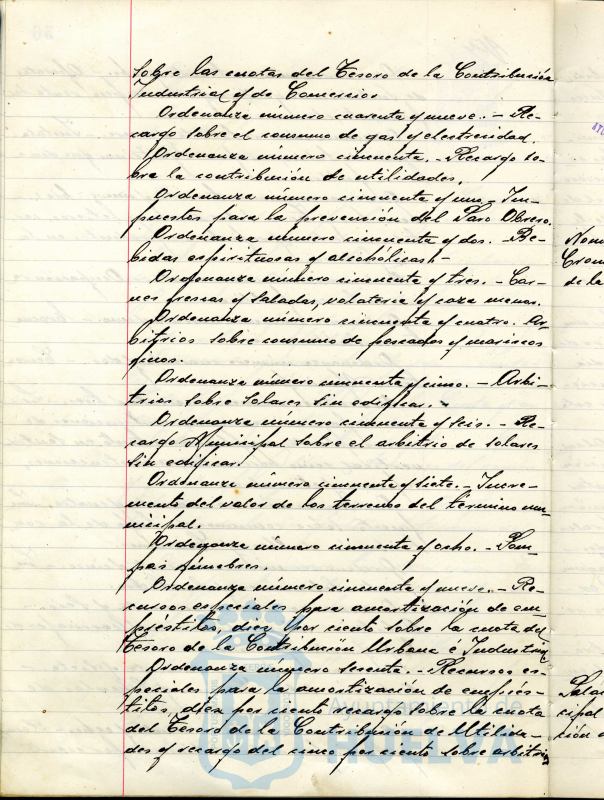 sobre las cuotas del Tesoro de la Contribución
Industrial y de Comercio.
Ordenanza número cuarenta y nueve. - Re-
cargo sobre el consumo de gas y electricidad.
Ordenanza número cincuenta. - Recargo so-
bre la contribución de utilidades.
Ordenanza número cincuenta y uno - Im-
puestos para la prevención del Paro Obrero.
Ordenanza número cincuenta y dos. - Be-
bidas espirituosas y alcohólicas. -
Ordenanza número cincuenta y tres. - Car-
nes frescas y saladas, volatería y caza menor.
Ordenanza número cincuenta y cuatro. Ar-
bitrios sobre consumo de pescados y mariscos
finos.
Ordenanza número cincuenta y cinco. - Arbi-
trios sobre Solares sin edificar. -
Ordenanza número cincuenta y seis. - Re-
cargo Municipal sobre el arbitrio de solares
sin edificar.
Ordenanza número cincuenta y siete. - Incre-
mento del valor de los terrenos del término mu-
nicipal.
Ordenanza número cincuenta y ocho. - Pom-
pas fúnebres.
Ordenanza número cincuenta y nueve. - Re-
cursos especiales para amortización de em-
préstitos, diez por ciento sobre la cuota del
Tesoro de la Contribución Urbana e Industrial
Ordenanza número sesenta. - Recursos es-
peciales para la amortización de emprés-
titos, diez por ciento recargo sobre la cuota
del Tesoro de la Contribución de Utilida-
des y recargo del cinco por ciento sobre arbitrios
Nom
Cron
de la
cipal
ción
Ayuntamiento de
HUELVA